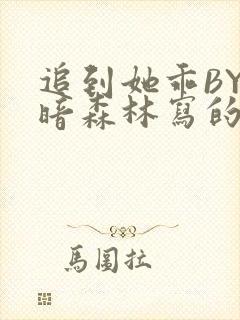 追到她乖BY
暗森林寫的
馬圖拉